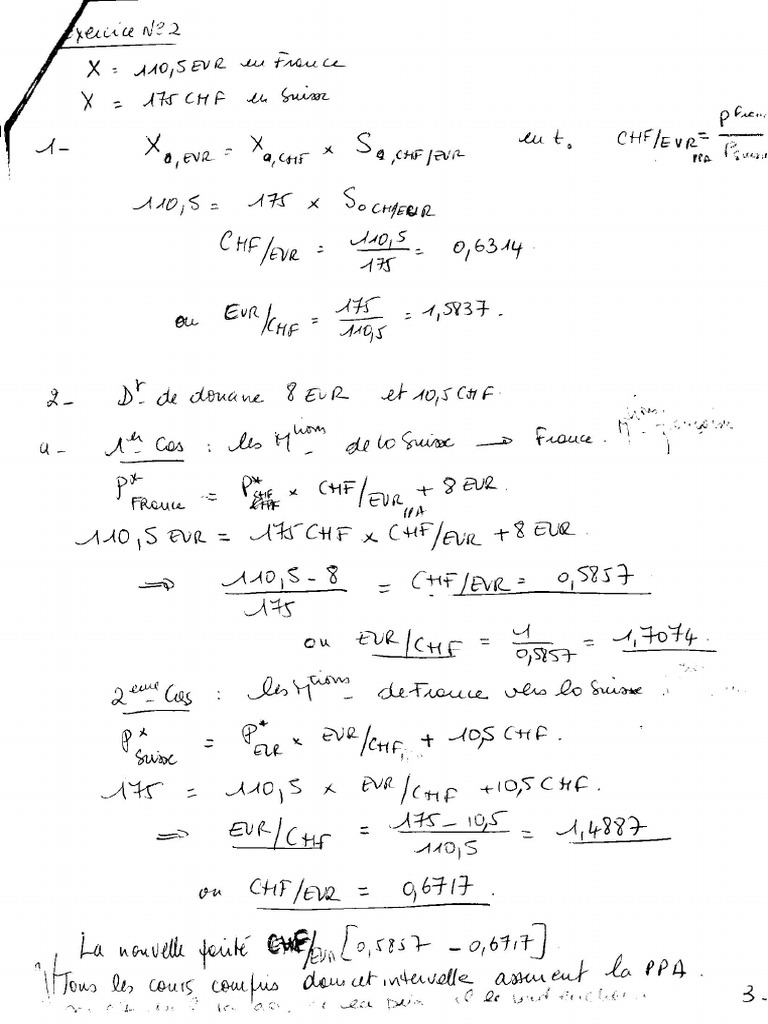 Exercice N°2
X = 110,5 EUR en France
X = 175 CHF en Suisse
1- X₀,EUR = X₀,CHF × S₀,CHF/EUR en t₀ CHF/EUR PPA = P
110,5 = 175 × S₀ CHF/EUR
CHF/EUR = 110,5/175 = 0,6314.
ou EUR/CHF = 175/110,5 = 1,5837.
2- Dʳ de douane 8 EUR et 10,5 CHF.
a- 1er Cas : les Mtions de la Suisse → France.
P* France = P* CHF × CHF/EUR PPA + 8 EUR.
110,5 EUR = 175 CHF × CHF/EUR + 8 EUR.
⇒ 110,5 - 8 / 175 = CHF/EUR = 0,5857
ou EUR/CHF = 1/0,5857 = 1,7074.
2eme Cas : les Mtions de France vers la Suisse
P* Suisse = P* EUR × EUR/CHF + 10,5 CHF.
175 = 110,5 × EUR/CHF + 10,5 CHF.
⇒ EUR/CHF = 175 - 10,5 / 110,5 = 1,4887
ou CHF/EUR = 0,6717.
La nouvelle parité CHF/EUR [0,5857 - 0,6717]
Tous les cours compris dans cet intervalle assurent la PPA.
3-